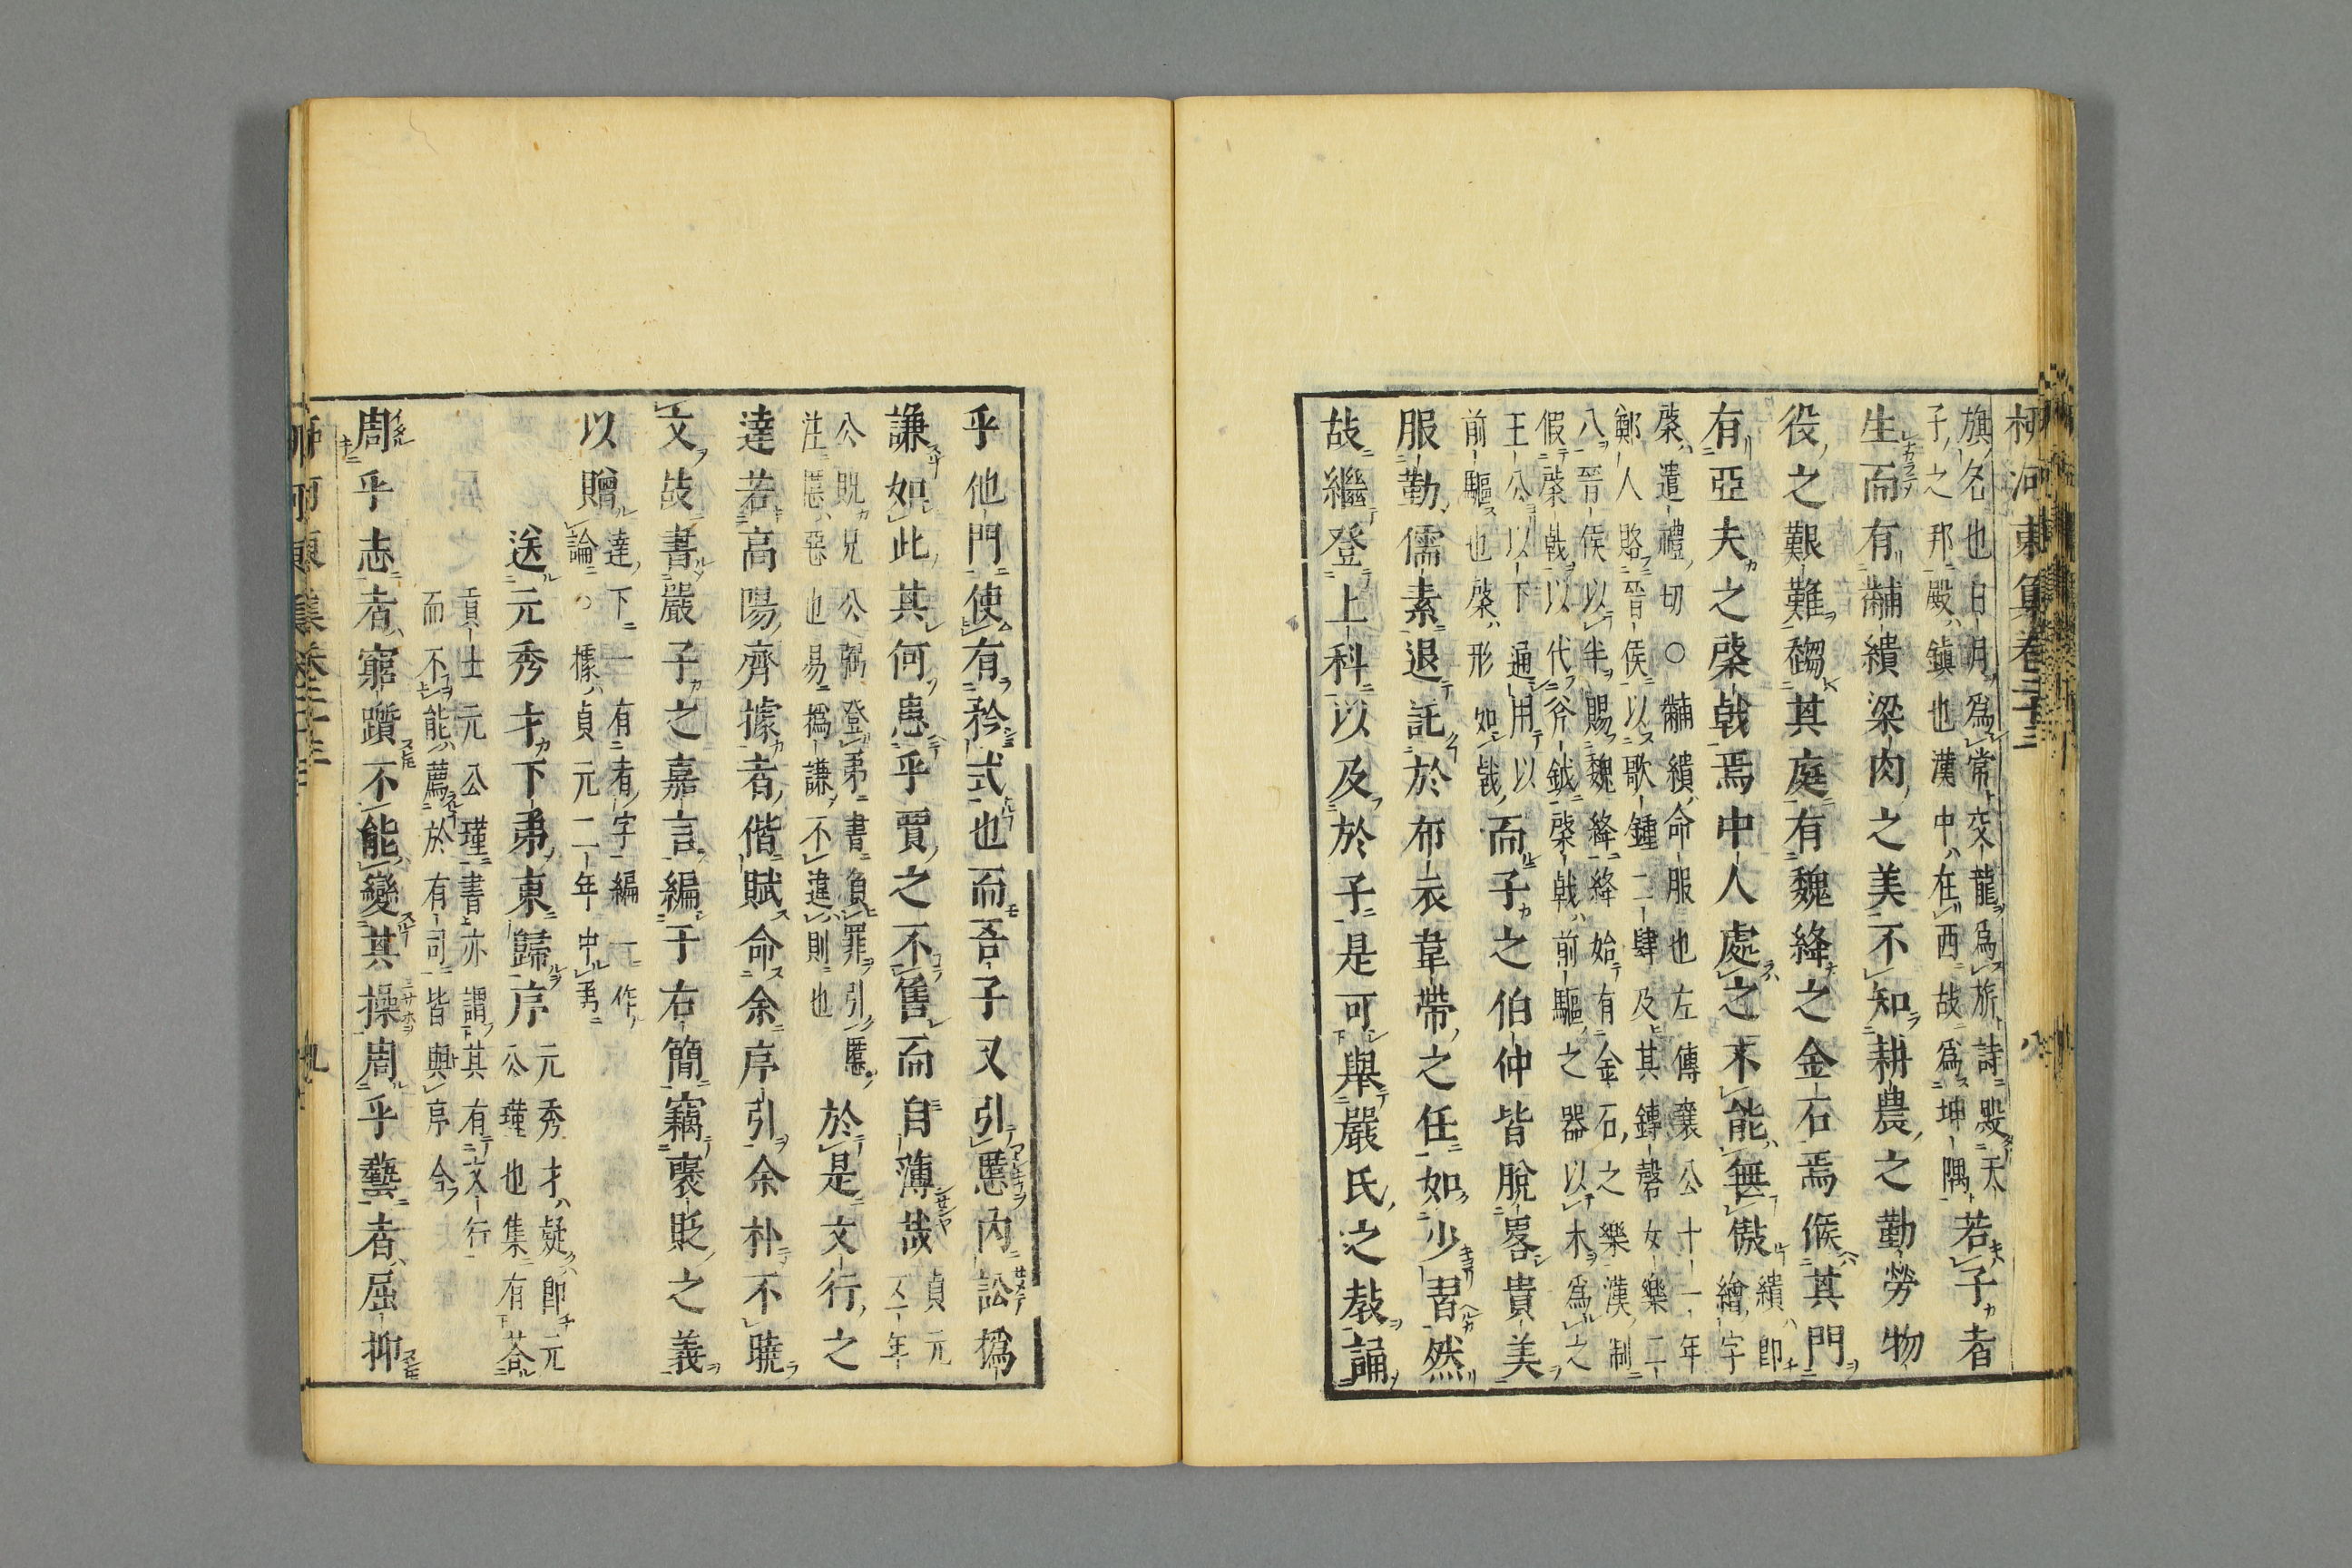 柳河東集卷二十三 八
旗名也日月爲常交龍爲旂詩殿天
子之邦殿鎭也漢中在西故爲坤隅
若子者
生而有黼繢粱肉之美不知耕農之勤勞物
役之艱難芻其庭有魏絳之金石焉候其門
有亞夫之棨戟焉中人處之不能無傲
繢即
繪字
棨遣禮切○黼繢命服也左傳襄公十一年
鄭人賂晉侯以歌鍾二肆及其鏄磬女樂二
八晉侯以半賜魏絳絳始有金石之樂漢制
假棨戟以代斧鉞棨戟前驅之器以木爲之
王公以下通用以
前驅也棨形如戟
而子之伯仲皆脫畧貴美
服勤儒素退託於布衣韋帶之任如少習然
故繼登上科以及於子是可舉嚴氏之教誦
乎他門使有矜式也而吾子又引慝內訟撝
謙如此其何患乎賈之不售而自薄哉
貞元
五年
公既兄公弼登弟書負罪引慝
注慝惡也易撝謙不違則也
於是文行之
達若高陽齊據者偕賦命余序引余朴不曉
文故書嚴子之嘉言編于右簡竊褒貶之義
以贈
達下一有者字編一作
論○據貞元二年中第
送元秀才下弟東歸序
元秀才疑即元
公瑾也集有荅
貢士元公瑾書亦謂其有文行
而不能薦於有司皆與序合
周乎志者窮躓不能變其操周乎藝者屈抑
柳河東集卷二十三 九